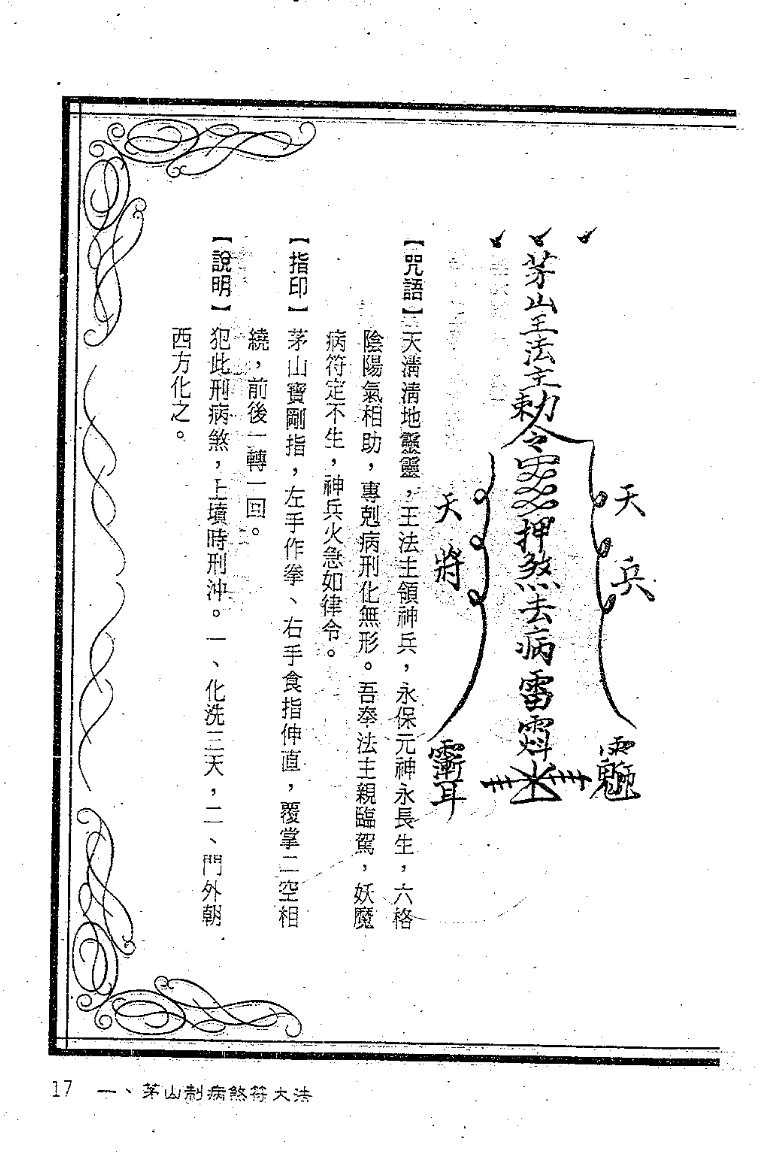 茅山王法主敕令
押煞去病雷
天兵
天將
【咒語】天清清地靈靈，王法主領神兵，永保元神永長生，六格
陰陽氣相助，專剋病刑化無形。吾奉法主親臨駕，妖魔
病符定不生，神兵火急如律令。
【指印】茅山寶剛指，左手作拳、右手食指伸直，覆掌二空相
繞，前後一轉一回。
【說明】犯此刑病煞，上墳時刑沖。一、化洗三天，二、門外朝
西方化之。
17 一、茅山制病煞符大法